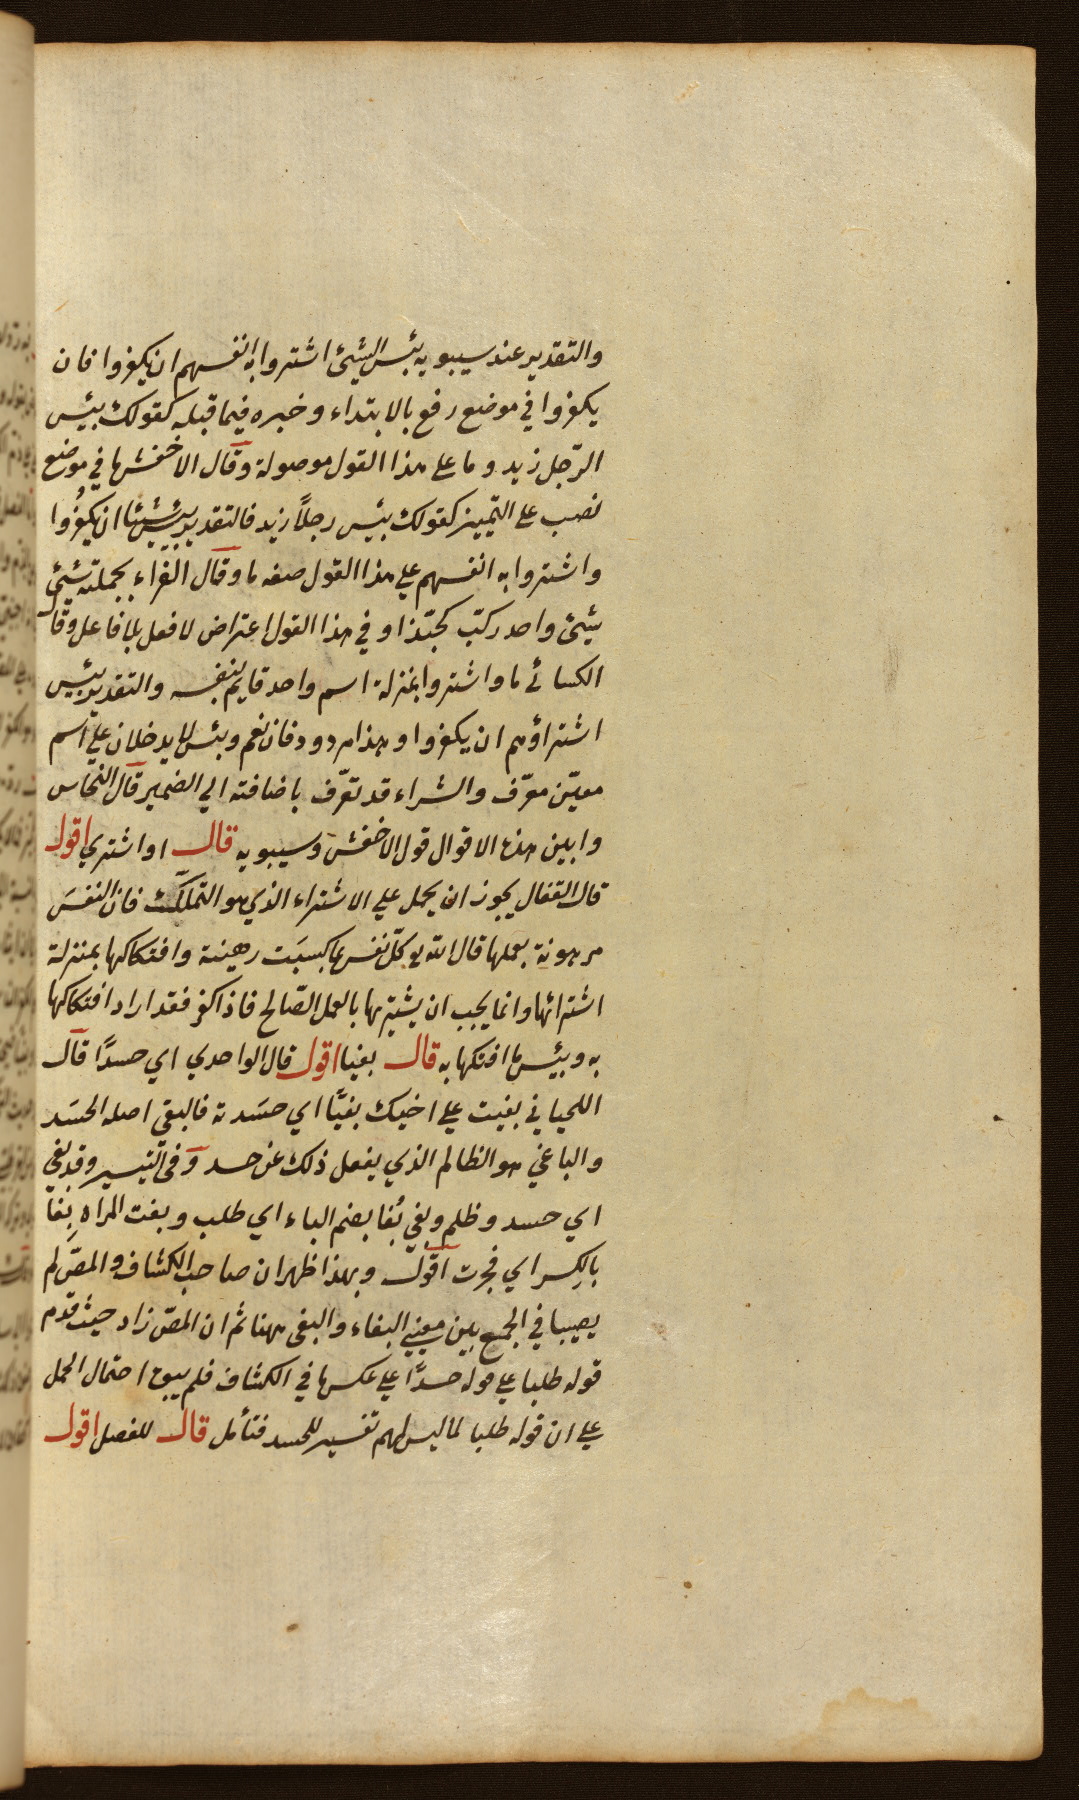 والتقدير عند سيبويه بئس الشيئ اشتروا به انفسهم ان يكفروا فان
يكفروا في موضع رفع بالابتداء وخبره فيما قبله كقولك بئيس
الرّجل زيد وما على هذا القول موصولة وقال الاخفش ما في موضع
نصب على التّمييز كقولك بئيس رجلاً زيد فالتقدير بئيس شيئا ان يكفُروا
واشتروا به انفسهم على هذا القول صفه ما وقال الفراء بجملته شيئ
شيئ واحد ركّب كحبّذا وفي هذا القول اعتراض لا فعل بلا فاعل وقال
الكسائي ما واشتروا بمنزلة اسم واحد قايم بنفسه والتقدير بئيس
اشتراؤهم ان يكفروا وهذا مردود فان نعم وبئس لا يدخلان على اسم
معيّن معرّف والشراء قد تعرّف باضافته الي الضمير قال النحاس
وابين هذه الاقوال قول الاخفش وسيبويه قال او اشتري اقول
قال القفال يجوز ان يحمل على الاشتراء الذي هو التملّك فان النفسَ
مرهونة بعملها قال الله تع كلّ نفس بما كسبَت رهينة وافتكاكها بمنزلة
اشترائها وانما يجب ان يشتريها بالعمل الصّالح فاذا كفر فقد اراد افتكاكها
به وبئيس ما افتكها به قال بغيا اقول قال الواحدي اي حسدًا قال
اللحياني بغيت على اخيك بغيًا اي حسَدته فالبغي اصله الحسَد
والباغي هو الظالم الذي يفعل ذلك عن حسد وفي التيسير وقد بغي
اي حسد وظلم وبغي بُغا بضم الباء اي طلب وبغت المراه بِغا
بالكِسر اي فجرت اقول وبهذا ظهر ان صاحب الكشاف والمصّ لم
يصيبا في الجمع بين معنيي البغاء والبغي ههنا ثم ان المصّ زاد حيث قدم
قوله طلبا على قوله حسدًا على عكس ما في الكشاف فلم يبق احتمال الحمل
على ان قوله طلبا لما ليس لهم تفسير للحسد فتأمل قال للفصل اقول